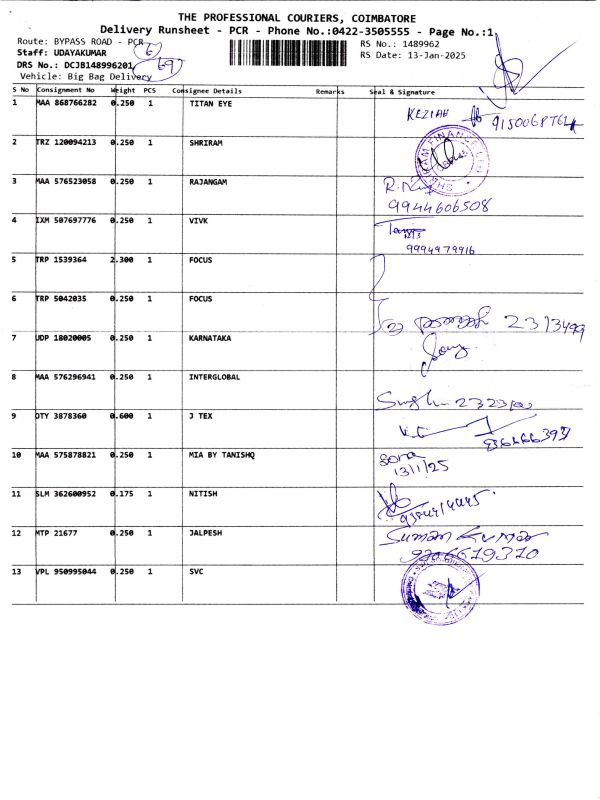 THE PROFESSIONAL COURIERS, COIMBATORE
Delivery Runsheet - PCR - Phone No.:0422-3505555 - Page No.:1
Route: BYPASS ROAD - PCR
RS No.: 1489962
Staff: UDAYAKUMAR
RS Date: 13-Jan-2025
DRS No.: DCJB148996201 69
Vehicle: Big Bag Delivery
S No Consignment No Weight PCS Consignee Details Remarks Seal & Signature
1 MAA 868766282 0.250 1 TITAN EYE KEZIAH
2 TRZ 120094213 0.250 1 SHRIRAM
3 MAA 576523058 0.250 1 RAJANGAM
9944606508
4 IXM 507697776 0.250 1 VIVK
9994979916
5 TRP 1539364 2.300 1 FOCUS
6 TRP 5042035 0.250 1 FOCUS
7 UDP 18020005 0.250 1 KARNATAKA
8 MAA 576296941 0.250 1 INTERGLOBAL
9 OTY 3878360 0.600 1 J TEX
10 MAA 575878821 0.250 1 MIA BY TANISHQ
13/1/25
11 SLM 362600952 0.175 1 NITISH
12 MTP 21677 0.250 1 JALPESH Suman Kumar
13 VPL 950995044 0.250 1 SVC